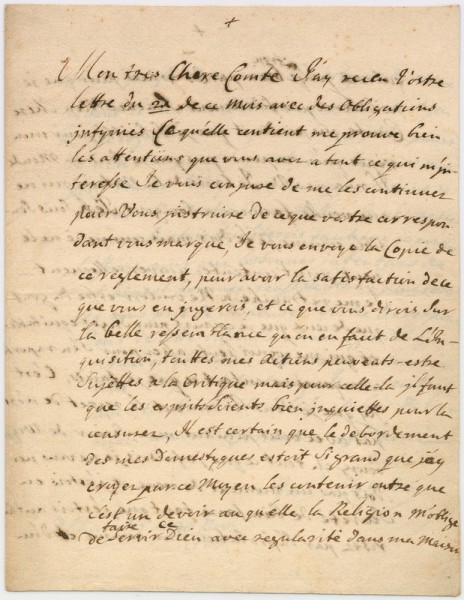 +
Mon tres Chere Comte J'ay receu Vostre
lettre du 22 de ce mois avec des Obligations
jnfynies Ce qu'elle contient me prouve bien
les attentions que vous avez a tout ce qui m'jn
teresse Je vous conjure de me les continuer
pour Vous jnstruire de ce que vostre correspon
dant vous marque, Je vous envoye la Copie de
ce reglement, pour avoir la satisfaction de ce
que vous en jugerois, et ce que vous dirois sur
la belle ressemblance qu'on en fait de L'jn
quisition, touttes mes actions peuvents estre
Sujettes a la Critique mais pour celle-la jl faut
que les esprits soients bien jnquiettes pour la
censurer, Il est certain que le debordement
des mes Domestyques estoit si grand que j'ay
croyer par ce Moyen les contenir outre que
c'est un devoir au quélle la Religion M'oblige
de faire Servir Dieu avec regularité dans ma Maison
ce